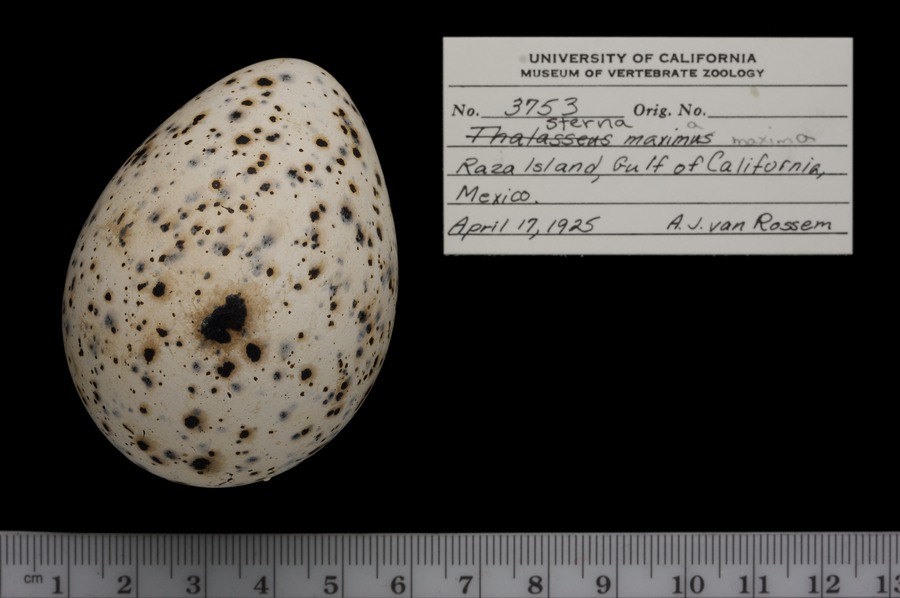 UNIVERSITY OF CALIFORNIA
MUSEUM OF VERTEBRATE ZOOLOGY
No. 3753 Orig. No.
sterna a
Thalasseus maximus maxima
Raza Island, Gulf of California,
Mexico.
April 17, 1925 A.J. van Rossem
cm 1 2 3 4 5 6 7 8 9 10 11 12 13